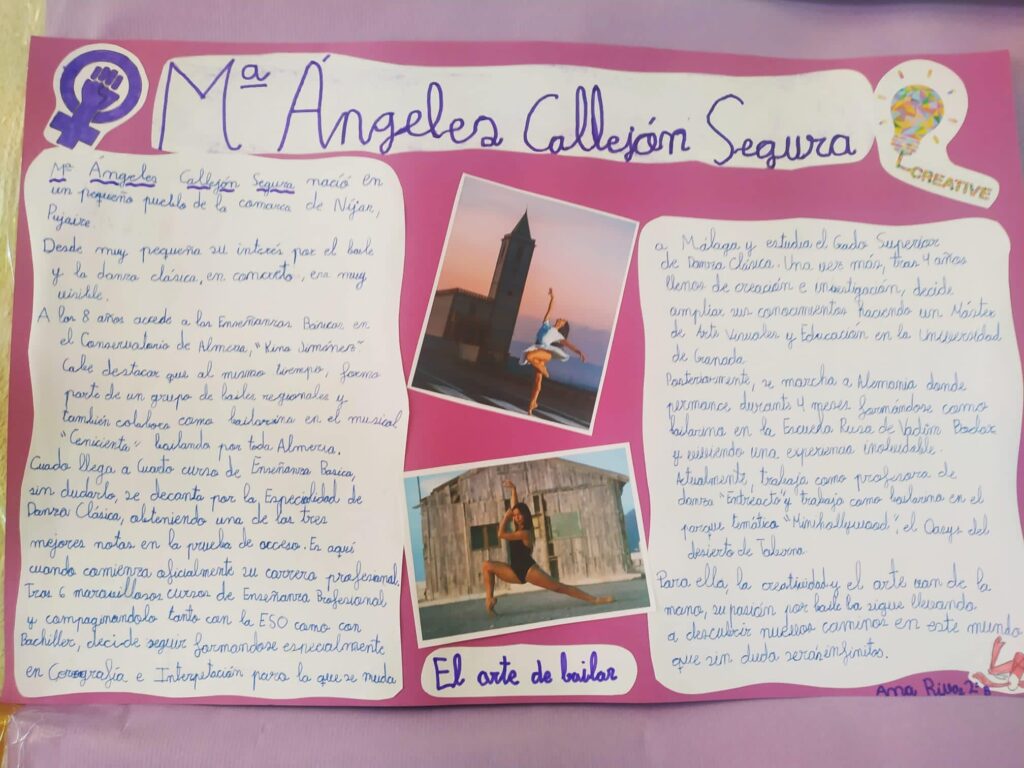 Mª Ángeles Callejón Segura
CREATIVE
Mª Ángeles Callejón Segura nació en
un pequeño pueblo de la comarca de Níjar,
Pujaire.
Desde muy pequeña su interés por el baile
y la danza clásica, en concreto, era muy
visible.
A los 8 años accede a las Enseñanzas Básicas en
el Conservatorio de Almería, "Kina Jiménez"
Cabe destacar que al mismo tiempo, forma
parte de un grupo de bailes regionales y
también colabora como bailarina en el musical
"Cenicienta" bailando por toda Almería.
Cuado llega a Cuarto curso de Enseñanza Básica,
sin dudarlo, se decanta por la Especialidad de
Danza Clásica, obteniendo una de las tres
mejores notas en la prueba de acceso. Es aquí
cuando comienza oficialmente su carrera profesional.
Tras 6 maravillosos cursos de Enseñanza Profesional
y compaginandolo tanto con la ESO como con
Bachiller, deci-de seguir formandose especialmente
en Coreografía e Interpetación para lo que se muda
El arte de bailar
a Málaga y estudia el Gado Superior
de Danza Clásica. Una vez más, tras 4 años
llenos de creación e investigación, decide
ampliar sus conocimientos haciendo un Máster
de Arts Visuales y Educación en la Universidad
de Granada.
Posteriormente, se marcha a Alemania donde
permance durante 4 meses formándose como
bailarina en la Escuela Rusa de Vadim Bondar
y viviendo una experiencia inolvidable.
Atualmente, trabaja como profesora de
danza "Entreacto" y trabaja como bailarina en el
parque temático "Minihollywood", el Oasys del
desierto de Taberna.
Para ella, la creatividad y el arte van de la
mano, su pasión por baile la sigue llevando
a descubrir nuevos caminos en este mundo
que sin duda serás infinitos.
Ana Rivas 2º B